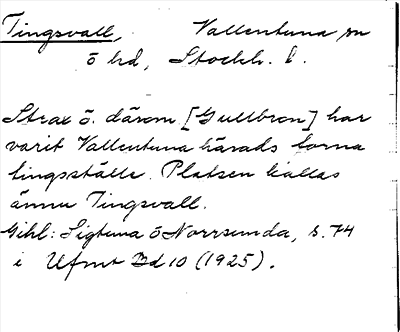 Tingsvall, Vallentuna sn
ö hd, Stockh. l.
Strax ö. därom [Gullbron] har
varit Vallentuna härads forna
tingsställe. Platsen kallas
ännu Tingsvall.
Gihl: Sigtuna o Norrsunda, s. 74
i Ufmt Bd 10 (1925).